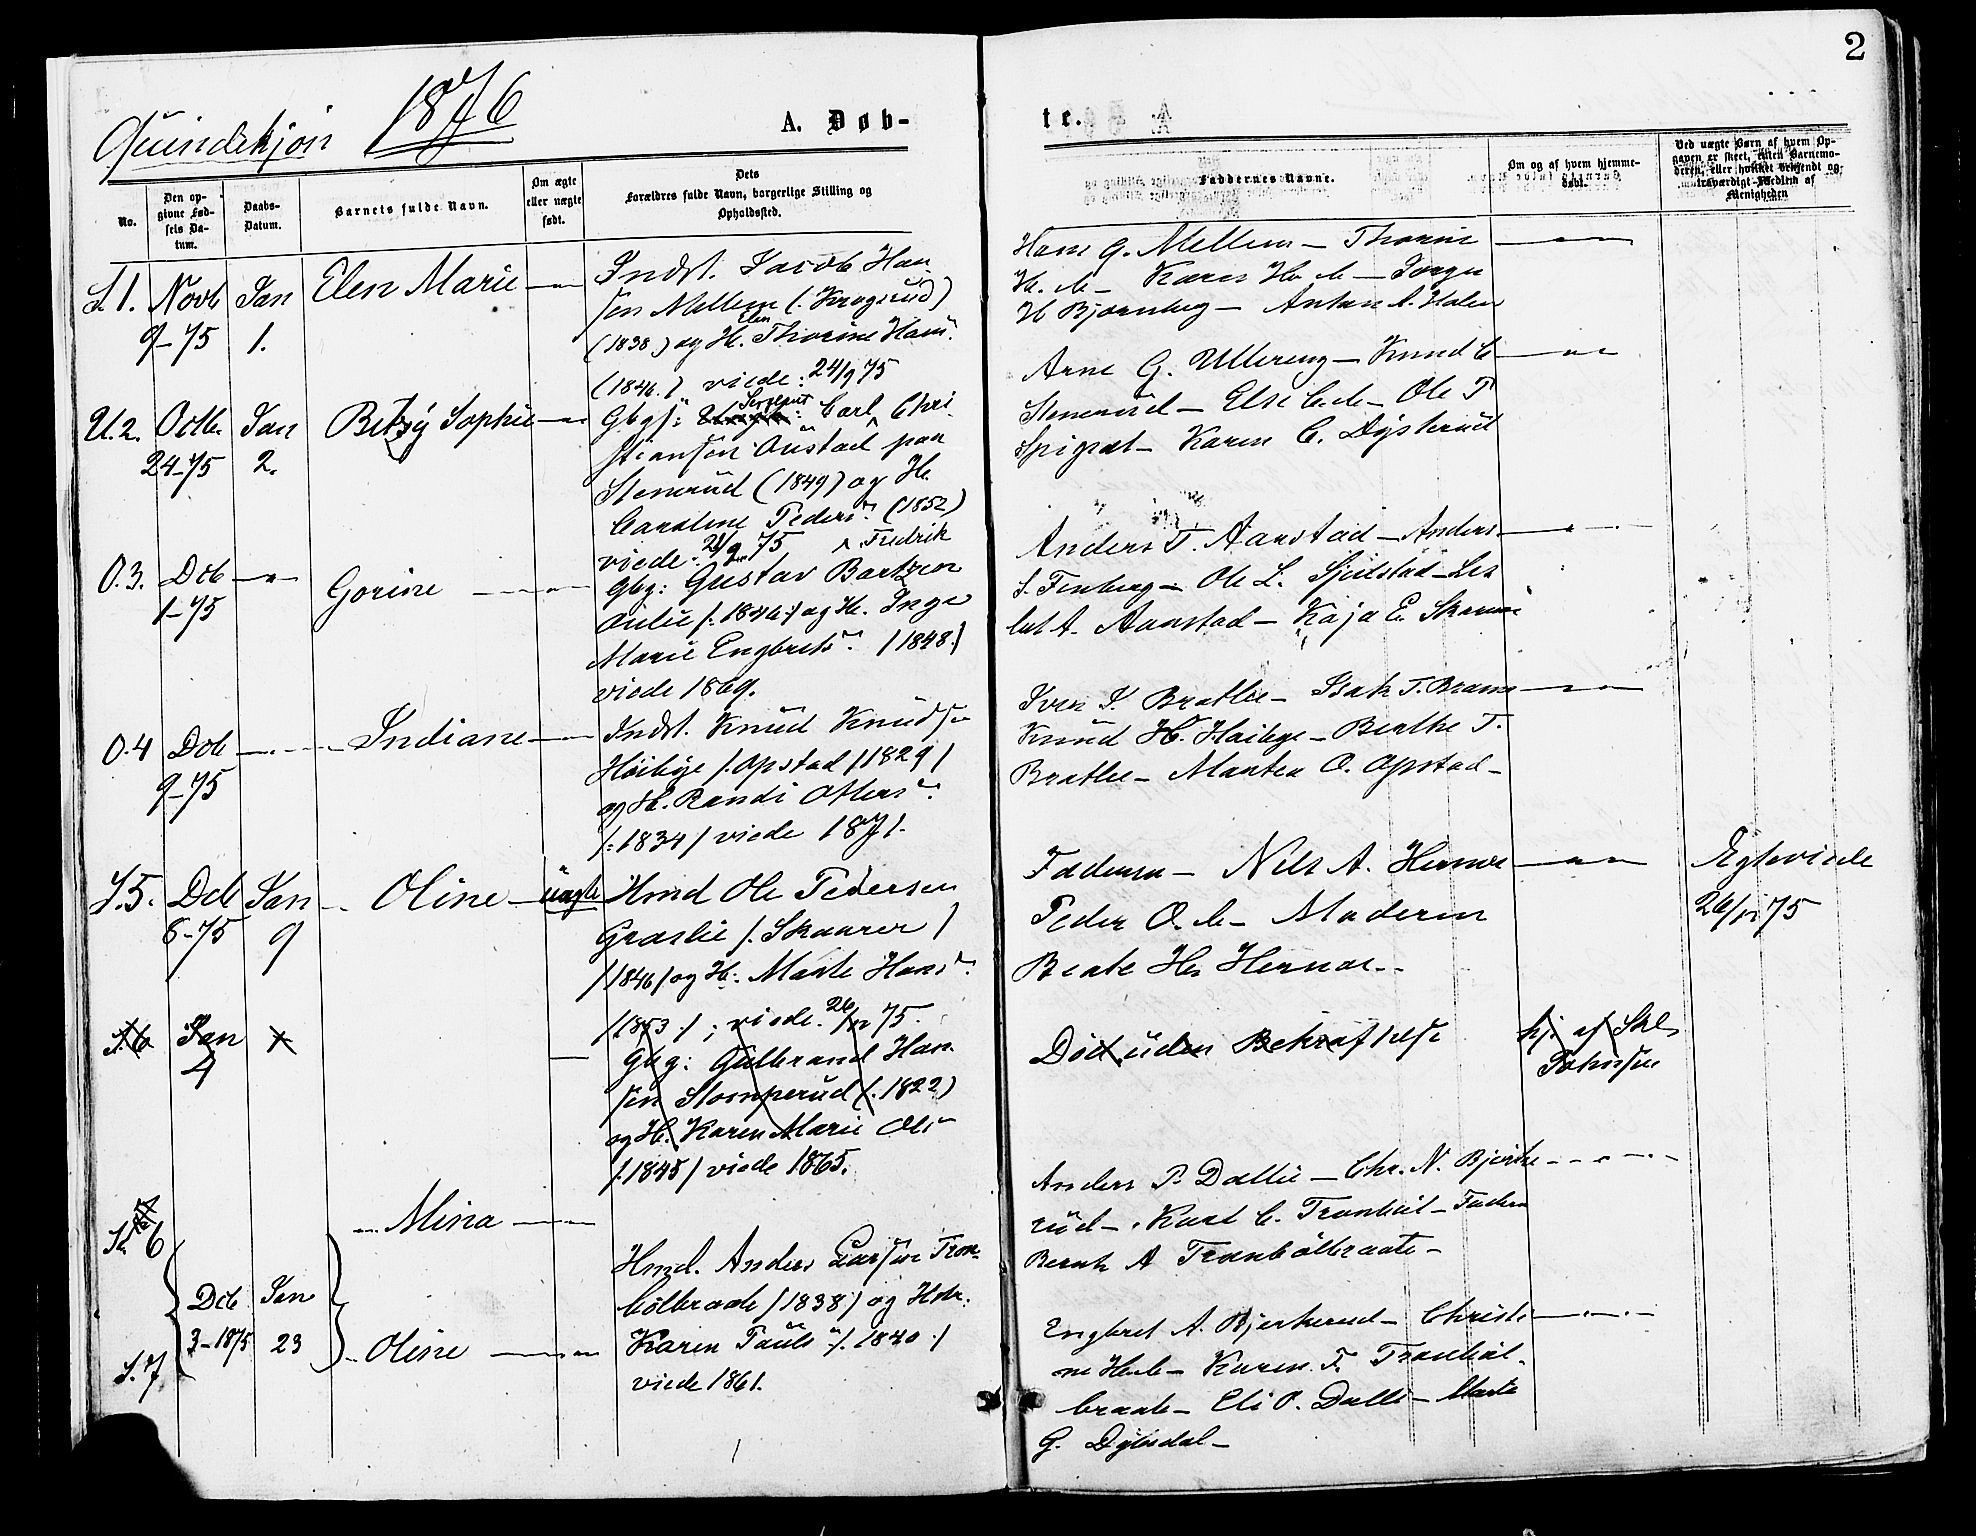 2
Quindekjøn 1876
A. Døb-
te.
No.
Den op-
givne Fød-
sels Da-
tum.
Daabs-
Datum.
Barnets fulde Navn.
Om ægte
eller uægte
født.
Dets
Forældres fulde Navn, borgerlige Stilling og
Opholdssted.
Faddernes Navne.
Om og af hvem hjemme-
døbt.
Ved uægte Børn af hvem Op-
gaven er skeet, enten Barnemo-
deren, eller hvilket bekjendt og
troværdigt Medlem af
Menigheden
S. 1. Novb Jan Elen Marie
9-75 1.
Indst. Jacob Han
sen Mellem (: Krogsrud)
(1838.) og H. Elen Thorine Hans.
(1846.) viede: 24/9 75
Hans G. Mellem - Thorine
H. - Karen H. - Jørgen
H Bjørneby - Anton A. Holen
U. 2. Octb. Jan Betzy Sophie
24-75 2.
Gbgs: Carl Chri
stiansen Oustad paa
Stenerud (1849) og H.
Caroline Peders. (1852)
viede: 75
Arne G. Ullereng - Knud C
Stenerud - Else - Ole P
Spigset - Karen C. Dysterud
O. 3. Dcb Gorine
1-75
Fredrik
Gbg: Gustav Bartzen
/: 1846:/ og H. Inge
Marie Engbrets. /1848./
viede 1869.
Anders T. Aanstad - Anders
S. Fenberg - Ole L. Sjulstad -
A. Aanstad - Kaja E.
O. 4 Dcb Indiane
9-75
Indst. Knud Knudsen
Høibye /: Opstad /1829/
og H. Randi Otters.
/: 1834/ viede 1871.
Iver I. Bratlie - Isak T.
Knud H. Høibye - Berthe T.
Bratlie - Marthea O. Opstad -
S. 5. Dcb Jan Oline uægte
8-75 9
Hmd Ole Pedersen
Graslie /: Skaarer /
/1846/ og H. Marte Hans.
/1853./; viede. 26/12 75.
Faderen - Nils A. Hernæs
Peder O. - Moderen
Beate H. Hernæs.
Egteviede
26/12 75
S. 6 Jan
4
Gbg: Gulbrand Han
sen Stomperud (: 1822)
og H. Karen Marie Ols
/: 1845/ viede 1865.
Død uden Bekræftelse
hj. af Skl.
Johnsen
6 Mina
Dcb Jan
3-1875 23
S. 7 Oline
Hmd. Anders Larsen Tron-
bølbraate /1838/ og H.
Karen Pauls. /: 1840./
viede 1861.
Anders P. Dallie - Chr. N. Bjerke
rud - Karl C. Tronbøl - Faderen
Bernt A Tronbølbraate -
Engbret A. Bjerkerud - Christi-
ne - Karen F. Tronbøl-
braate - Eli O. Dalli - Marte
G. Dybedal -